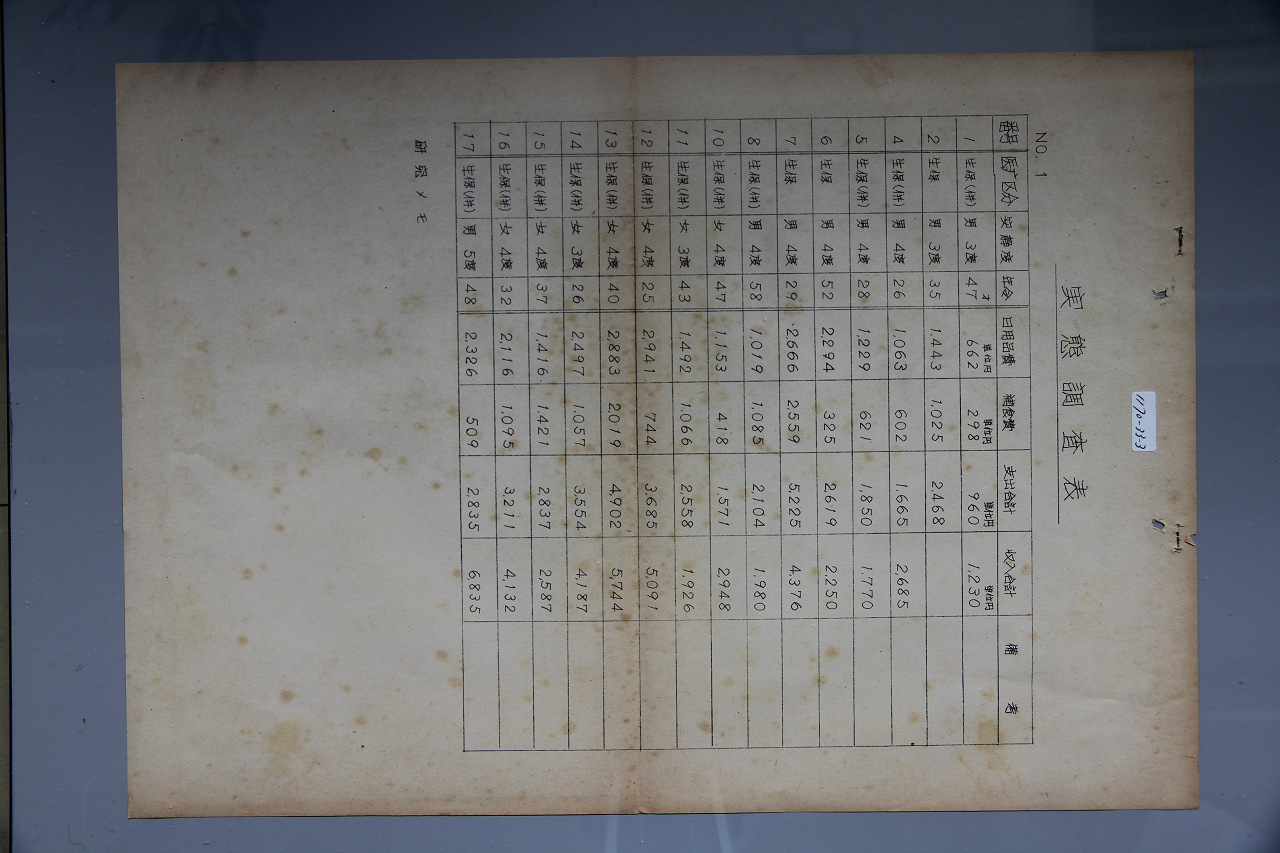 1170-33-3
実態調査表
NO. 1
番号 医療区分 安静度 年令 日用品費 補食費 支出合計 収入合計 備考
1 生保(併) 男 3度 47才 単位円 662 単位円 298 単位円 960 単位円 1,230
2 生保 男 3度 35 1,443 1,025 2,468
4 生保(併) 男 4度 26 1,063 602 1,665 2,685
5 生保(併) 男 4度 28 1,229 621 1,850 1,770
6 生保 男 4度 52 2,294 325 2,619 2,250
7 生保 男 4度 29 2,666 2,559 5,225 4,376
8 生保(併) 男 4度 58 1,019 1,085 2,104 1,980
10 生保(併) 女 4度 47 1,153 418 1,571 2,948
11 生保(併) 女 3度 43 1,492 1,066 2,558 1,926
12 生保(併) 女 4度 25 2,941 744 3,685 5,091
13 生保(併) 女 4度 40 2,883 2,019 4,902 5,744
14 生保(併) 女 3度 26 2,497 1,057 3,554 4,187
15 生保(併) 女 4度 37 1,416 1,421 2,837 2,587
16 生保(併) 女 4度 32 2,116 1,095 3,211 4,132
17 生保(併) 男 5度 48 2,326 509 2,835 6,835
研究メモ